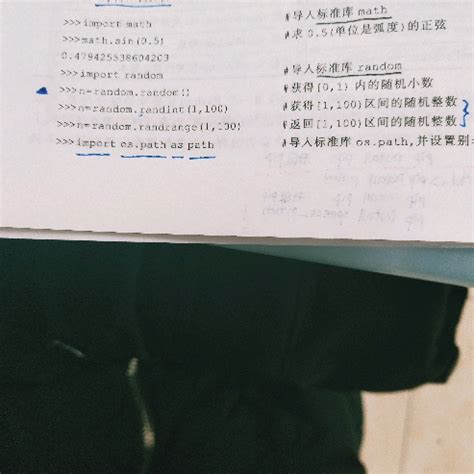 >>>import math #导入标准库 math
>>>math.sin(0.5) #求 0.5(单位是弧度)的正弦
0.479425538604203
>>>import random #导入标准库 random
>>>n=random.random() #获得[0,1) 内的随机小数
>>>n=random.randint(1,100) #获得[1,100)区间的随机整数
>>>n=random.randrange(1,100) #返回[1,100)区间的随机整数
>>>import os.path as path #导入标准库 os.path,并设置别